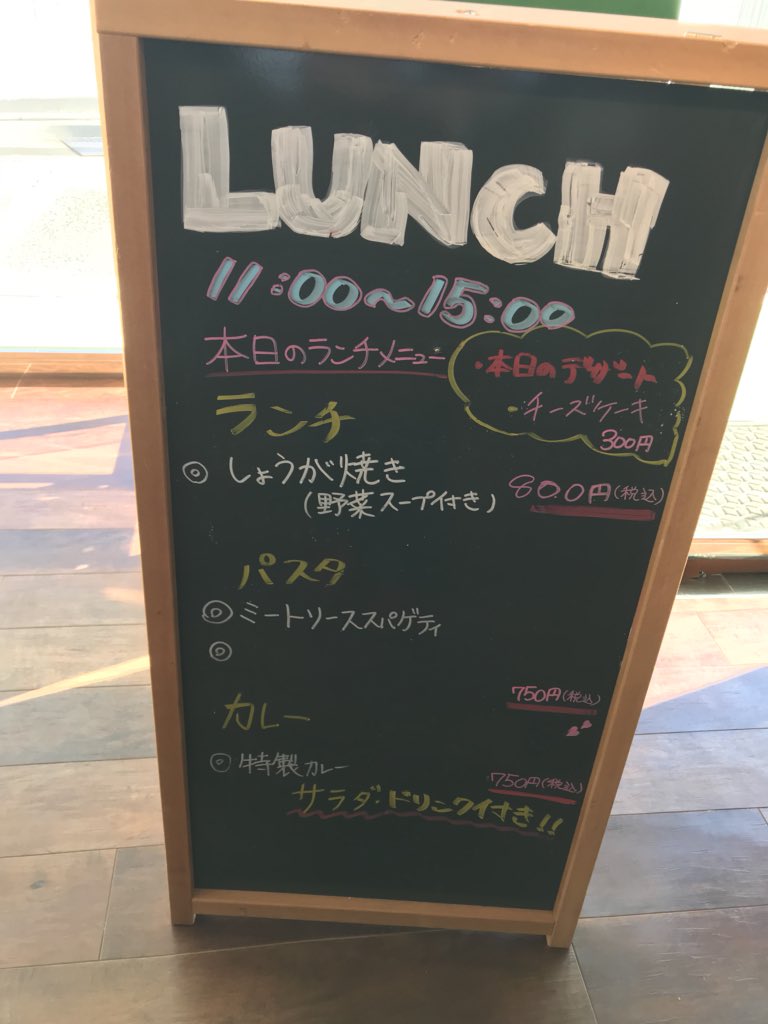 LUNCH
11:00〜15:00
本日のランチメニュー
・本日のデザート
・チーズケーキ
300円
ランチ
◎ しょうが焼き
(野菜スープ付き) 800円(税込)
パスタ
◎ ミートソーススパゲティ
◎
750円(税込)
カレー
◎ 特製カレー
750円(税込)
サラダ・ドリンク付き!!